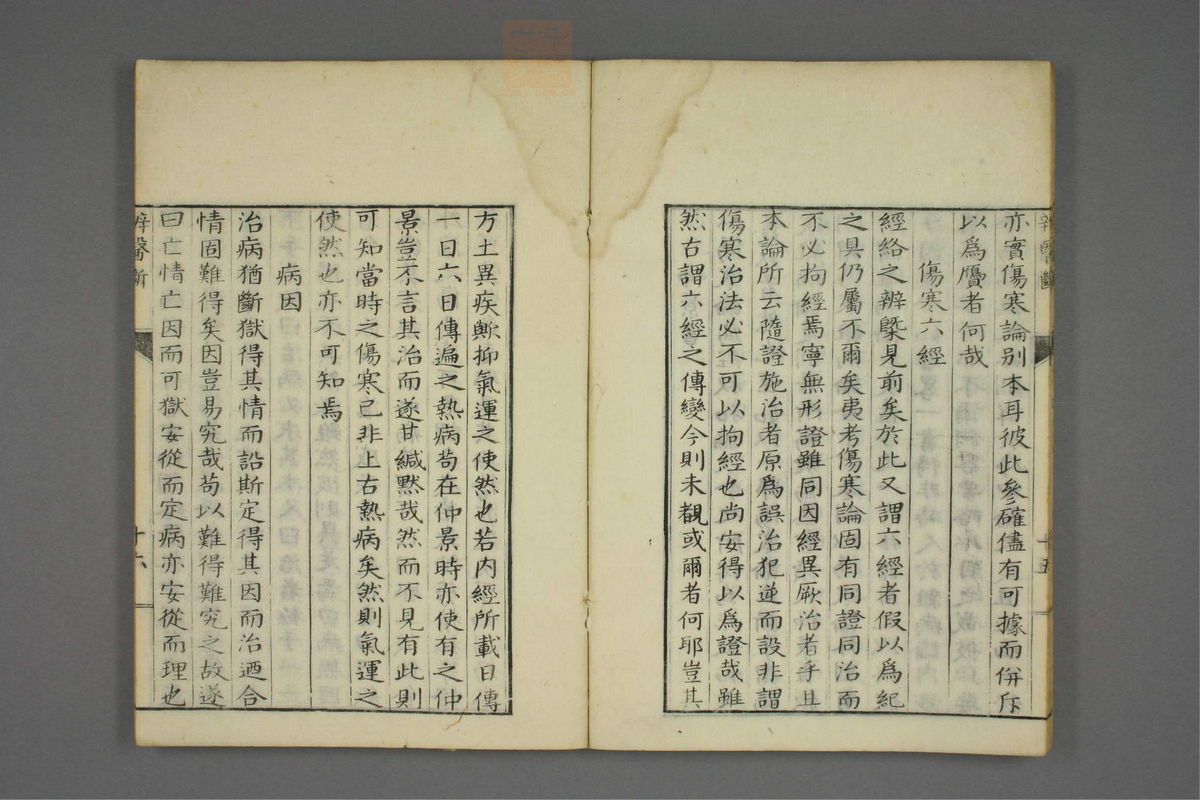 辨醫斷
十五
亦實傷寒論別本耳彼此參確儘有可據而併斥
以爲贋者何哉
傷寒六經
經絡之辨槩見前矣於此又謂六經者假以爲紀
之具仍屬不爾矣夷考傷寒論固有同證同治而
不必拘經焉寧無形證雖同因經異厥治者乎且
本論所云隨證施治者原爲誤治犯逆而設非謂
傷寒治法必不可以拘經也尚安得以爲證哉雖
然古謂六經之傳變今則未覩或爾者何耶豈其
方土異疾歟抑氣運之使然也若內經所載日傳
一日六日傳遍之熱病苟在仲景時亦使有之仲
景豈不言其治而遂甘緘默哉然而不見有此則
可知當時之傷寒已非上古熱病矣然則氣運之
使然也亦不可知焉
病因
治病猶斷獄得其情而訟斯定得其因而治迺合
情固難得矣因豈易究哉苟以難得難究之故遂
曰亡情亡因而可獄安從而定病亦安從而理也
辨醫斷
十六